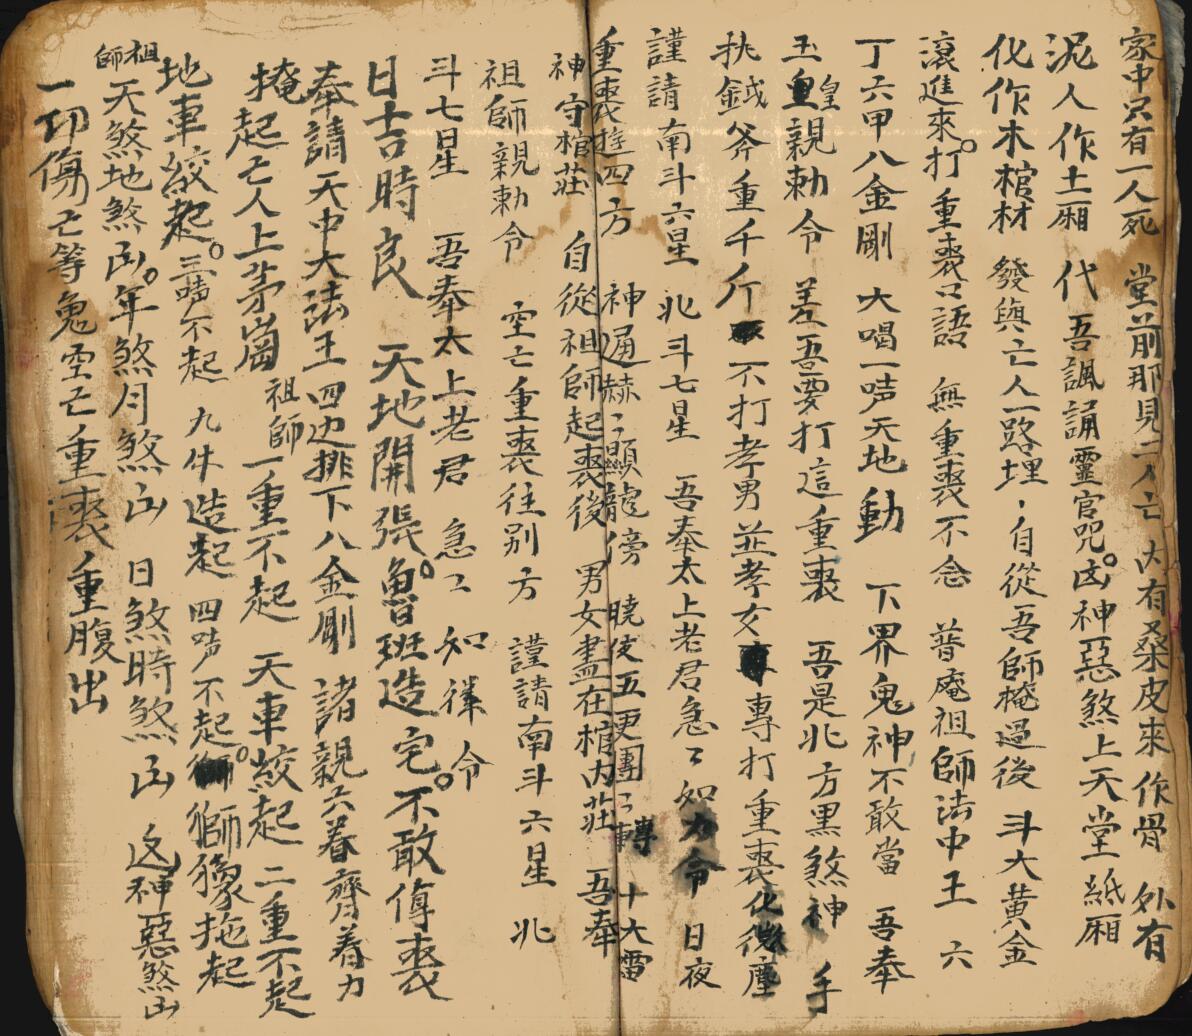 家中只有一人死 堂前那見二人亡 内有桑皮來作骨 外有
泥人作土廂 代吾諷誦靈官咒 凶神惡煞上天堂 紙廂
化作木棺材 發與亡人一路埋 自從吾師掩過後 斗大黃金
滾進來 打重喪口語 無重喪不念 普庵祖師法中王 六
丁六甲八金剛 大喝一声天地動 下界鬼神不敢當 吾奉
玉皇親勅令 差吾要打這重喪 吾是北方黑煞神 手
执鉞斧重千斤 不打孝男並孝女 專打重喪化微塵
謹請南斗六星 北斗七星 吾奉太上老君急々如力令 日夜
重喪遊四方 神通赫々顯龍傍 曉夜五更團々轉 十大雷
神守棺莊 自從祖師起喪後 男女盡在棺内莊 吾奉
祖師親勅令 空亡重喪往别方 謹請南斗六星 北
斗七星 吾奉太上老君 急々 如律令
日吉時良 天地開張 魯班造宅 不敢停喪
奉請天中大法王 四边排下八金剛 諸親六眷齊着力
掩起亡人上茅崗 祖師一重不起 天車絞起 二重不起
地車絞起 三声不起 九牛造起 四声不起 獅獬拖起
祖師 天煞地煞凶 年煞月煞凶 日煞時煞凶 凶神惡煞凶
一切傷亡等鬼 空亡重喪重腹出